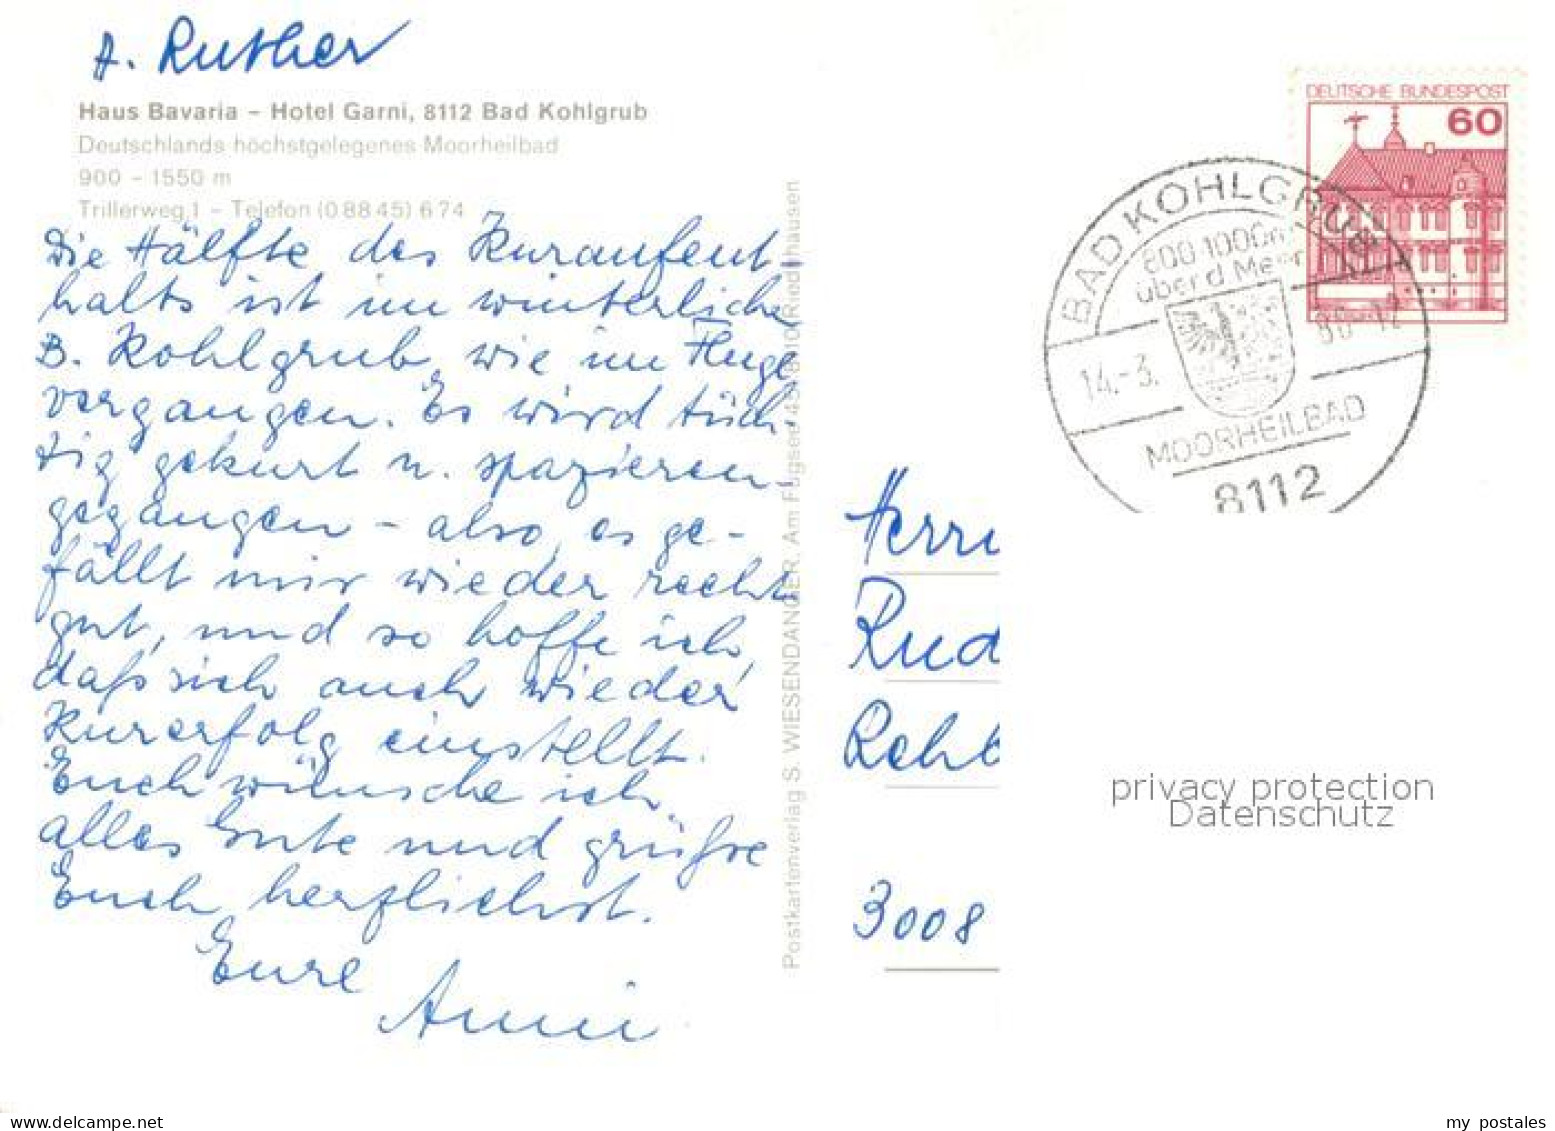 A. Ruther
Haus Bavaria – Hotel Garni, 8112 Bad Kohlgrub
Deutschlands höchstgelegenes Moorheilbad
900 – 1550 m
Trillerweg 1 – Telefon (0 88 45) 6 74
Die Hälfte des Kuraufent-
halts ist im winterlichen
B. Kohlgrub wie im Fluge
vergangen. Es wird tüch-
tig gekurt u. spazieren-
gegangen – also, es ge-
fällt mir wieder recht
gut, und so hoffe ich,
daß sich auch wieder
Kurerfolg einstellt.
Euch wünsche ich
alles Gute und grüße
Euch herzlichst.
Eure
Anni
Postkartenverlag S. WIESENDANGER. Am Fugsee
Riedhausen
DEUTSCHE BUNDESPOST
60
BAD KOHLGRUB
800-1000m
über d Meer
14.-3.
MOORHEILBAD
8112
Herrn
Rud
Reh
3008
privacy protection
Datenschutz
the-west-art
my postales